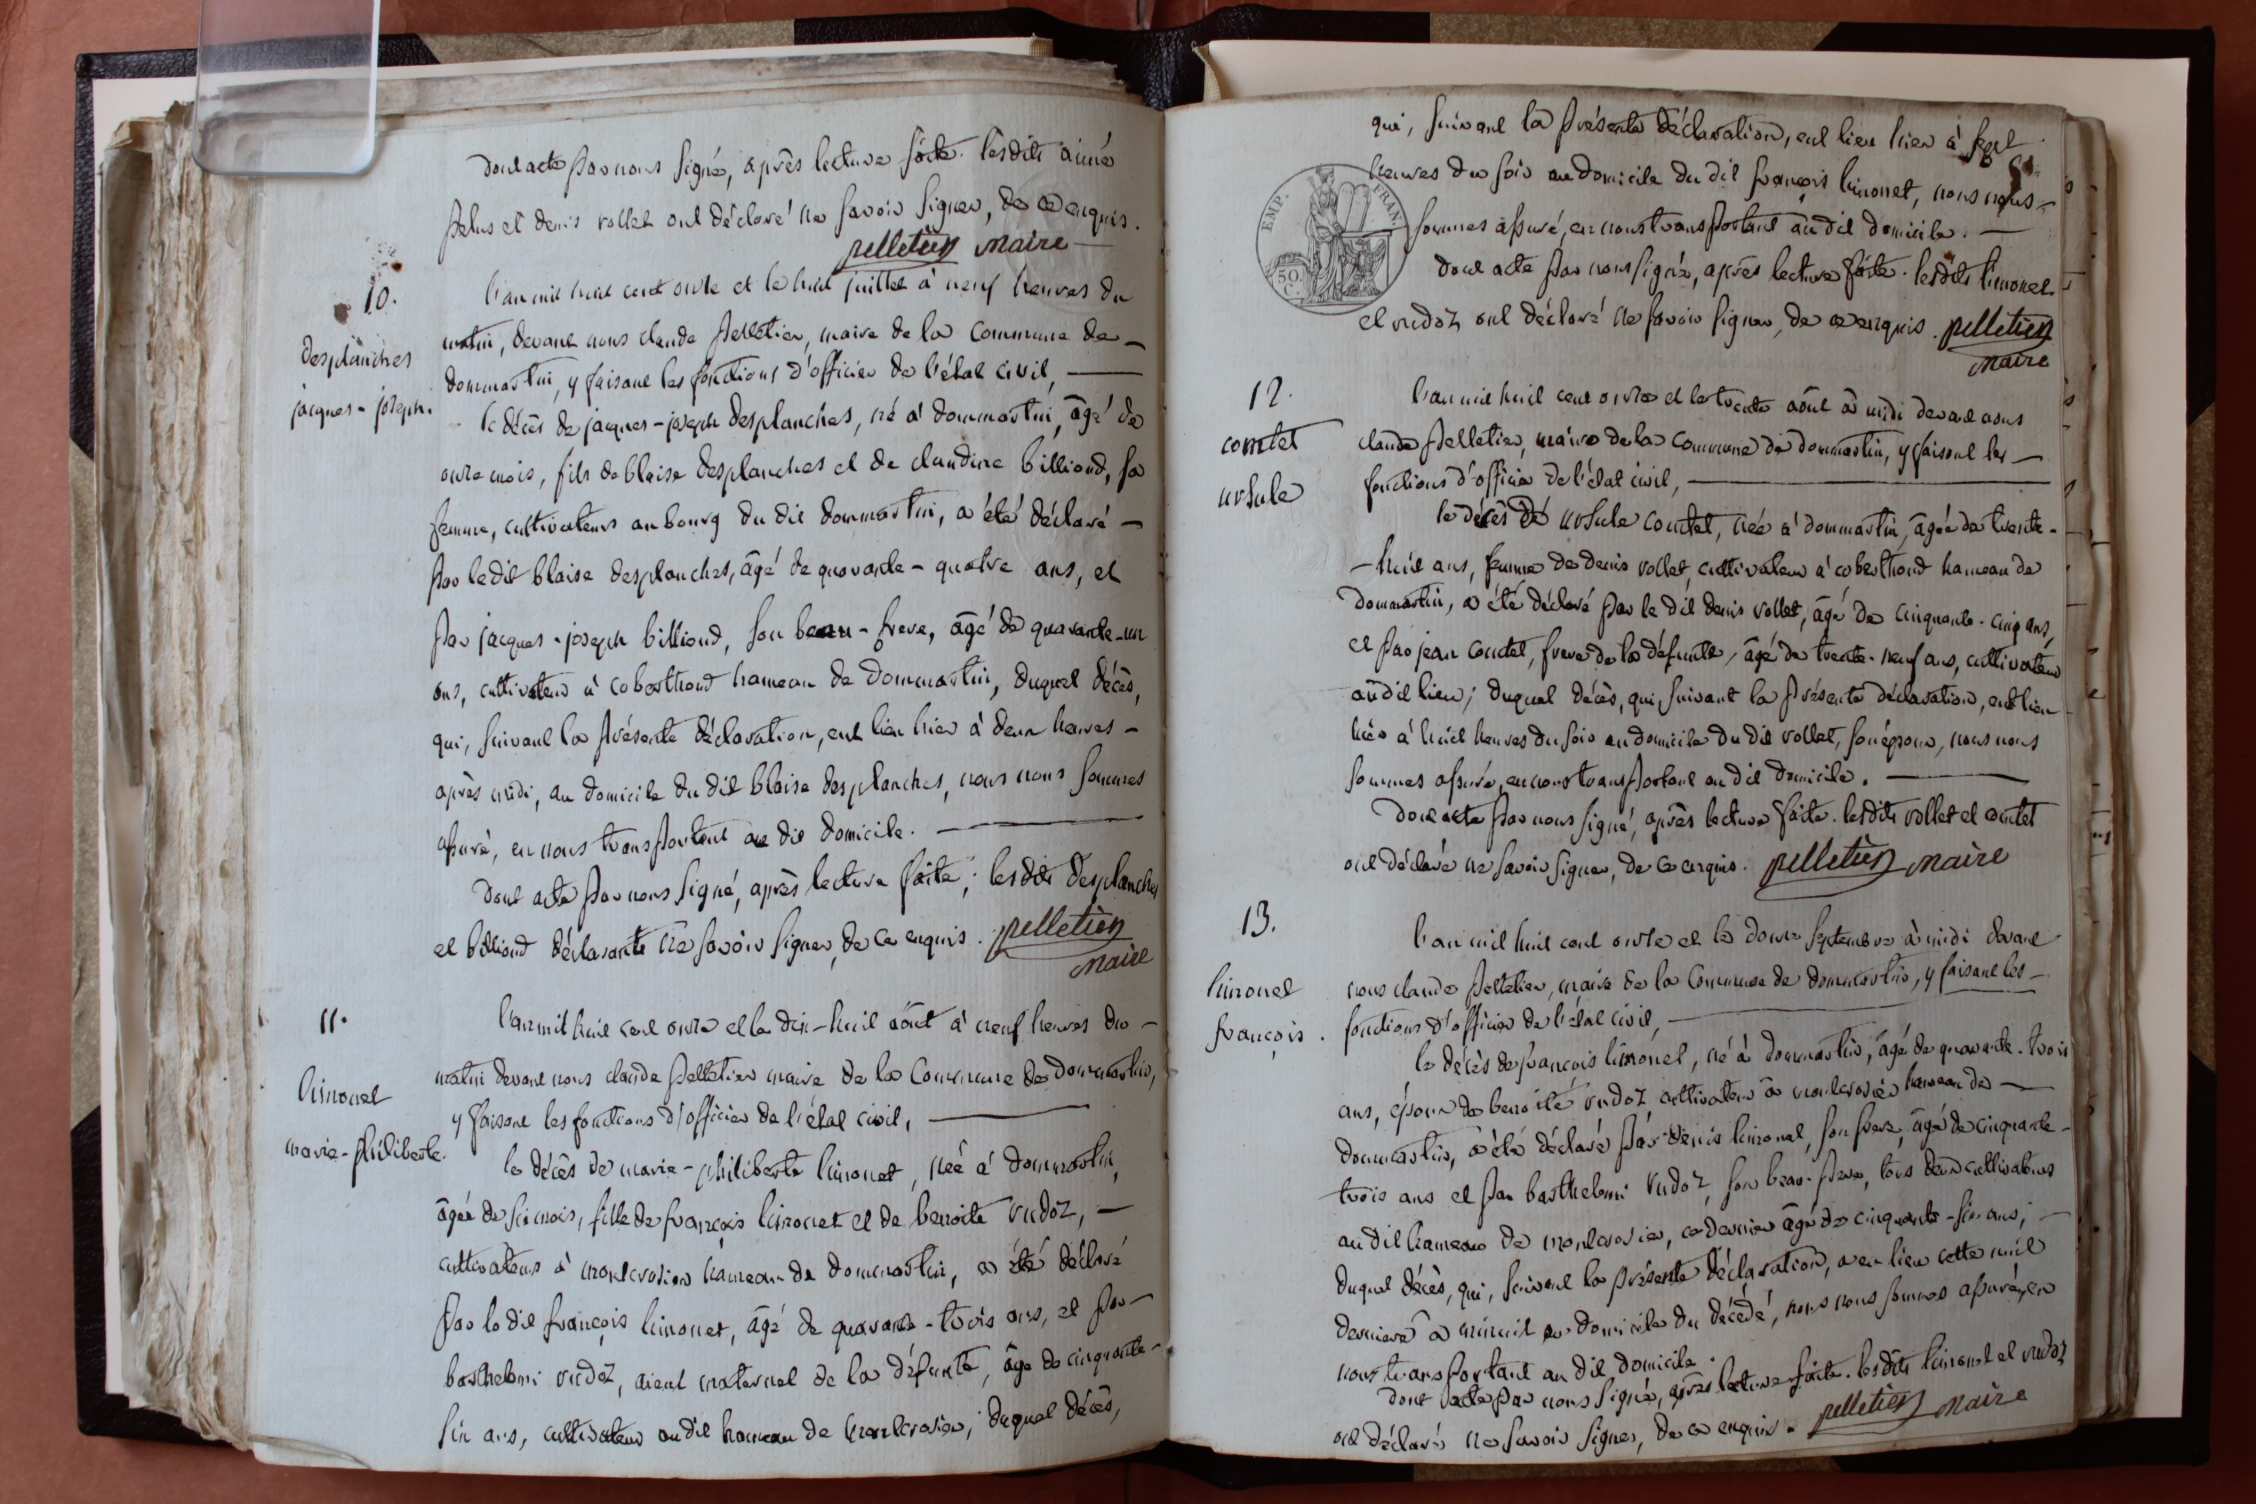 dont acte par nous signé, après lecture faite. lesdits aimé
pelus et denis vollet ont déclaré ne savoir signer, de ce enquis.
pelletier maire
10.
desplanches
jacques-joseph.
l'an mil huit cent onze et le huit juillet à neuf heures du
matin, devant nous claude pelletier, maire de la commune de
dommartin, y faisant les fonctions d'officier de l'état civil,
le décès de jacques-joseph desplanches, né à dommartin, âgé de
onze mois, fils de blaise desplanches et de claudine billiond, sa
femme, cultivateurs au bourg du dit dommartin, a été déclaré
par le dit blaise desplanches, âgé de quarante-quatre ans, et
par jacques-joseph billiond, son beau-frere, âgé de quarante-un
ans, cultivateur à coberthoud hameau de dommartin, duquel décès,
qui, suivant la présente déclaration, eut lieu hier à deux heures
après midi, au domicile du dit blaise desplanches, nous nous sommes
assuré, en nous transportant au dit domicile.
dont acte par nous signé, après lecture faite; lesdits desplanches
et billiond déclarants ne savoir signer, de ce enquis. pelletier
maire
11.
limonet
marie-philiberte.
l'an mil huit cent onze et le dix-huit août à neuf heures du
matin devant nous claude pelletier maire de la commune de dommartin,
y faisant les fonctions d'officier de l'état civil,
le décès de marie-philiberte limonet, née à dommartin,
âgée de six mois, fille de françois limonet et de benoite vudoz,
cultivateurs à montcrosier hameau de dommartin, a été déclaré
par le dit françois limonet, âgé de quarante-trois ans, et par
barthelemi vudoz, aieul maternel de la défunte, âgé de cinquante-
six ans, cultivateur au dit hameau de montcrosier; duquel décès,
qui, suivant la présente déclaration, eut lieu hier à sept
heures du soir au domicile du dit françois limonet, nous nous
sommes assuré, en nous transportant au dit domicile.
dont acte par nous signé, après lecture faite. lesdits limonet
et vudoz ont déclaré ne savoir signer, de ce enquis. pelletier
maire
EMP. FRAN.
50 C.
12.
contet
ursule
l'an mil huit cent onze et le trente août à midi devant nous
claude pelletier, maire de la commune de dommartin, y faisant les
fonctions d'officier de l'état civil,
le décès de ursule contet, née à dommartin, âgée de trente-
-huit ans, femme de denis vollet, cultivateur à coberthoud hameau de
dommartin, a été déclaré par le dit denis vollet, âgé de cinquante-cinq ans,
et par jean contet, frere de la défunte, âgé de trente-neuf ans, cultivateur
au dit lieu; duquel décès, qui, suivant la présente déclaration, eut lieu
hier à huit heures du soir au domicile du dit vollet, son époux, nous nous
sommes assuré, en nous transportant au dit domicile.
dont acte par nous signé, après lecture faite. lesdits vollet et contet
ont déclaré ne savoir signer, de ce enquis. pelletier maire
13.
limonet
françois.
l'an mil huit cent onze et le douze septembre à midi devant
nous claude pelletier, maire de la commune de dommartin, y faisant les
fonctions d'officier de l'état civil,
le décès de françois limonet, né à dommartin, âgé de quarante-trois
ans, époux de benoite vudoz cultivateur à montcrosier hameau de
dommartin, a été déclaré par denis limonet, son frere, âgé de cinquante-
trois ans et par barthelemi vudoz, son beau-pere, tous deux cultivateurs
au dit hameau de montcrosier, ce dernier âgé de cinquante-six ans;
duquel décès, qui, suivant la présente déclaration, a eu lieu cette nuit
derniere à minuit au domicile du décédé, nous nous sommes assuré, en
nous transportant au dit domicile.
dont acte par nous signé, après lecture faite. lesdits limonet et vudoz
ont déclaré ne savoir signer, de ce enquis. pelletier maire